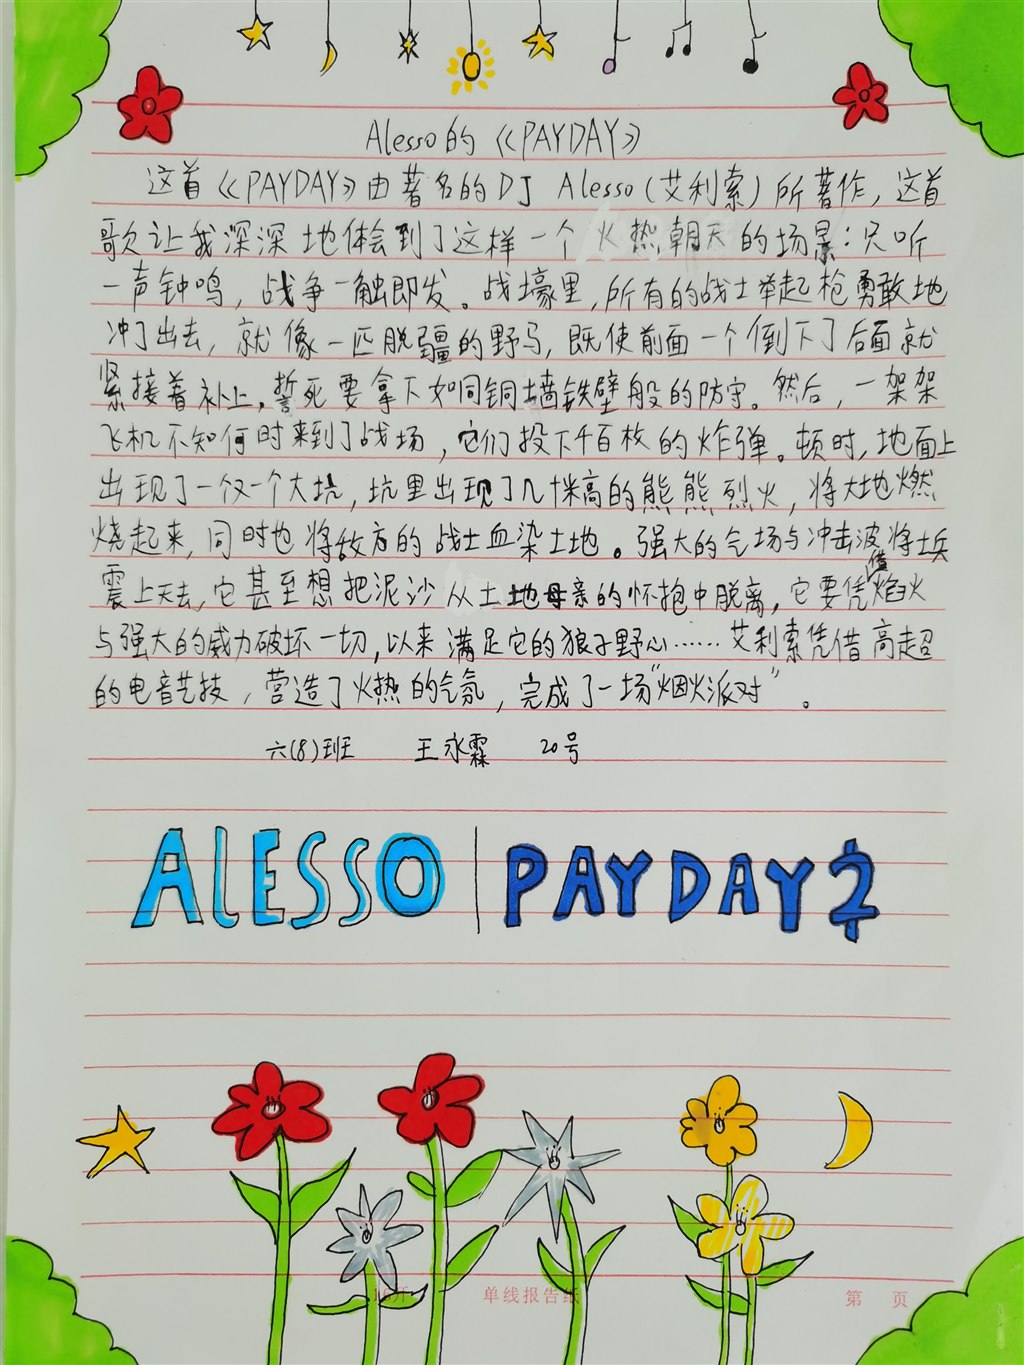 Alesso的《PAYDAY》
这首《PAYDAY》由著名的DJ Alesso（艾利索）所著作，这首
歌让我深深地体会到了这样一个火热朝天的场景：只听
一声钟鸣，战争一触即发。战壕里，所有的战士举起枪勇敢地
冲了出去，就像一匹脱疆的野马，既使前面一个倒下了后面就
紧接着补上，誓死要拿下如同铜墙铁壁般的防守。然后，一架架
飞机不知何时来到了战场，它们投下千百枚的炸弹。顿时，地面上
出现了一个又一个大坑，坑里出现了几十米高的熊熊烈火，将大地燃
烧起来，同时也将敌方的战士血染土地。强大的气场与冲击波将士兵
震上天去，它甚至想把泥沙从土地母亲的怀抱中脱离，它要凭借焰火
与强大的威力破坏一切，以来满足它的狼子野心……艾利索凭借高超
的电音艺技，营造了火热的气氛，完成了一场“烟火派对”。
六(8)班 王永霖 20号
ALESSO | PAYDAY 2
16开 单线报告纸 第 页